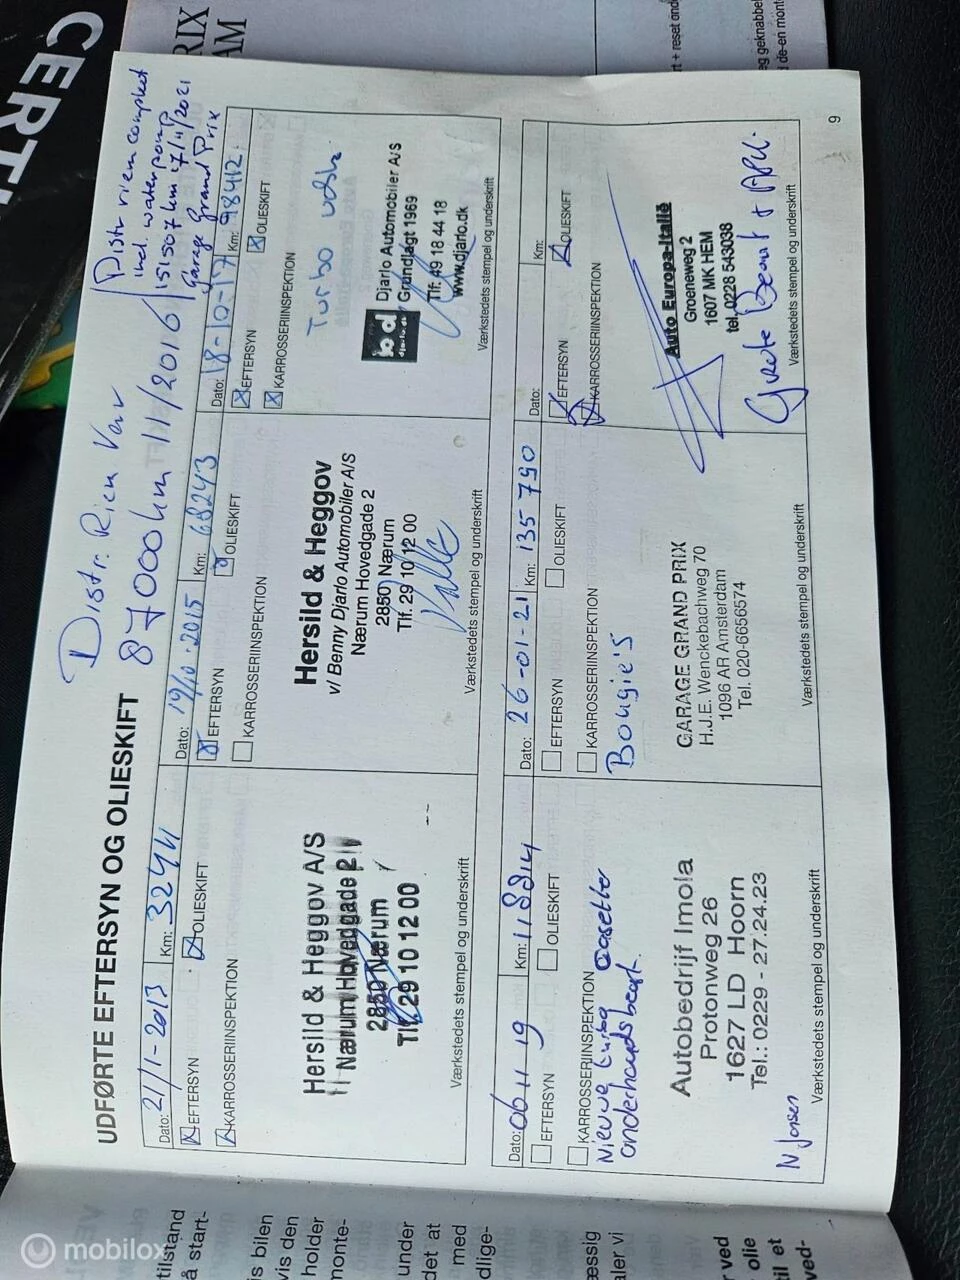 CERT
RIX
AM
t + reset ond
eg geknabbel
d de-en mont
Distr. Riem Verv
87000km 11/2016
Distr riem compleet
incl. waterpomp
151507 km 17/11/2021
Garage Grand Prix
UDFØRTE EFTERSYN OG OLIESKIFT
Dato: 21/1-2013 Km: 32411
EFTERSYN OLIESKIFT
KARROSSERIINSPEKTION
Hersild & Heggov A/S
Nærum Hovedgade 2
2850 Nærum
Tlf. 29 10 12 00
Værkstedets stempel og underskrift
Dato: 19/10-2015 Km: 68243
EFTERSYN OLIESKIFT
KARROSSERIINSPEKTION
Hersild & Heggov
v/ Benny Djarlo Automobiler A/S
Nærum Hovedgade 2
2850 Nærum
Tlf. 29 10 12 00
Værkstedets stempel og underskrift
Dato: 18-10-17 Km: 98412
EFTERSYN OLIESKIFT
KARROSSERIINSPEKTION
Turbo
bd
djarlo.dk
Djarlo Automobiler A/S
Grundlagt 1969
Tlf. 49 18 44 18
www.djarlo.dk
Værkstedets stempel og underskrift
Dato: 06 11 19 Km: 118814
EFTERSYN OLIESKIFT
KARROSSERIINSPEKTION
Nieuwe turbo cassette
onderhoudsbeurt.
Autobedrijf Imola
Protonweg 26
1627 LD Hoorn
Tel.: 0229 - 27.24.23
N Jonsen
Værkstedets stempel og underskrift
Dato: 26-01-21 Km: 135790
EFTERSYN OLIESKIFT
KARROSSERIINSPEKTION
Bougie's
GARAGE GRAND PRIX
H.J.E. Wenckebachweg 70
1096 AR Amsterdam
Tel. 020-6656574
Værkstedets stempel og underskrift
Dato: Km:
EFTERSYN OLIESKIFT
KARROSSERIINSPEKTION
Auto Europa-Italië
Groeneweg 2
1607 MK HEM
tel. 0228 543038
Groote Beurt + APK.
Værkstedets stempel og underskrift
9
tilstand
å start-
is bilen
vis den
holder
monte-
under
det at
med
dlige-
æssig
aler vi
er ved
olie
til et
ved-
mobilox